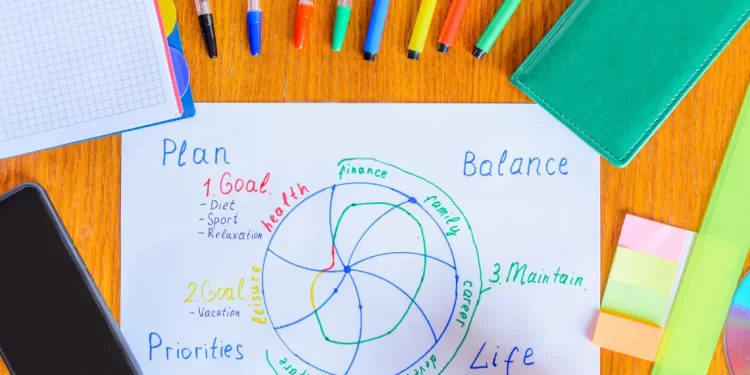 Plan
Balance
1. Goal
- Diet
- Sport
- Relaxation
health
finance
family
career
3. Maintain
2. Goal
- Vacation
leisure
Priorities
Life